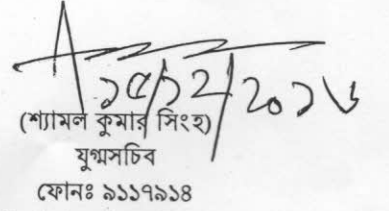 ১৫/১২/২০১৬
(শ্যামল কুমার সিংহ)
যুগ্মসচিব
ফোনঃ ৯১১৭৯১৪